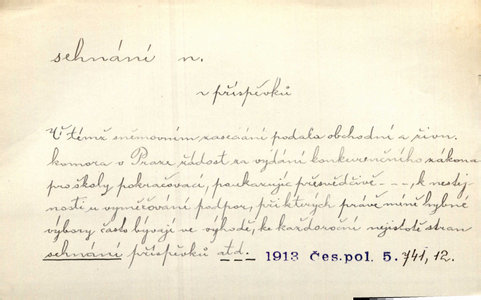 sehnání n.
v příspěvků
V témž sněmovním zasedání podala obchodní a živn.
komora v Praze žádost za vydání konkurenčního zákona
pro školy pokračovací, poukazujíc přesvědčivě ---, k nestej-
nosti u vyměřování podpor, při kterých právě méně hybné
výbory často bývají ve výhodě, ke každoroční nejistotě stran
sehnání příspěvků atd. --- 1913 Čes. pol. 5. 741, 12.